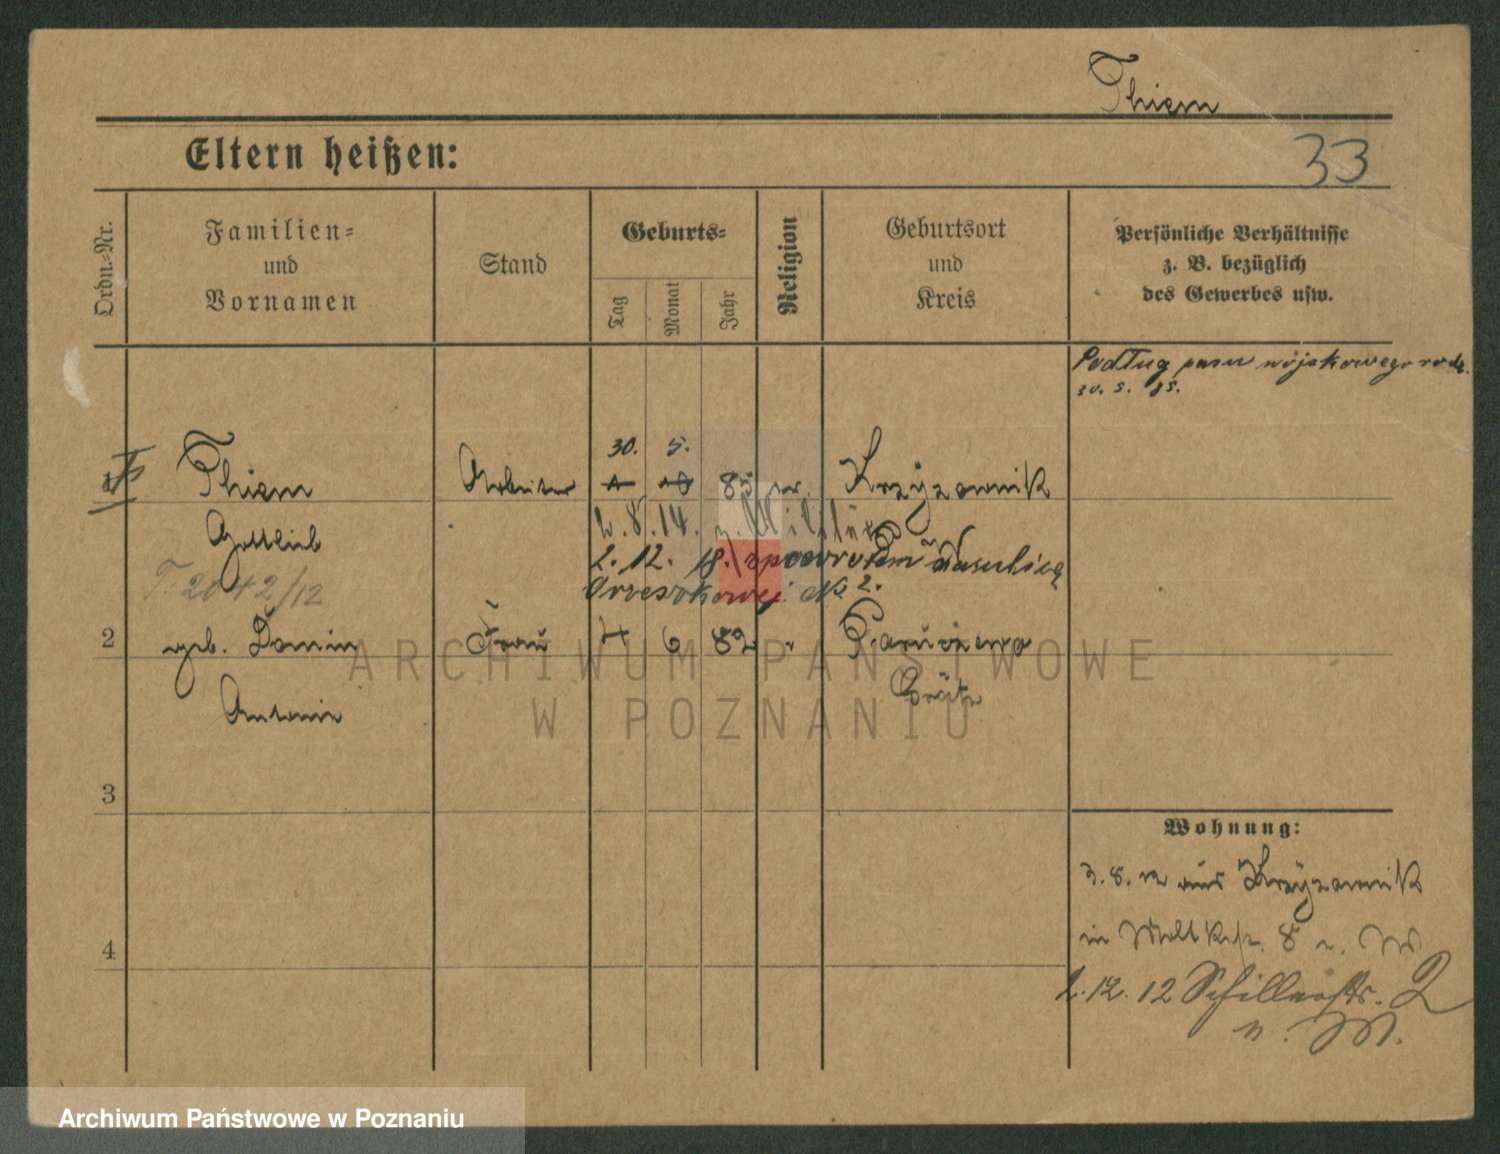 Thiem
Eltern heißen:
33
Ordn.-Nr.
Familien-
und
Vornamen
Stand
Geburts-
Tag
Monat
Jahr
Religion
Geburtsort
und
Kreis
Persönliche Verhältnisse
z. B. bezüglich
des Gewerbes usw.
Podług pasu wojskowego rodz.
30. 5. 85.
30. 5.
1 Thiem Arbeiter 85 Krzyżownik
Gottlieb
2. 8. 14. z. Militär
2. 12. 18. z powrotem
Orzeszkowej No 2.
T. 2042/12
2 geb. Domin Frau 4 6 82 "
Antonie
Grätz
3
4
Wohnung:
3. 8. 12 aus Krzyżownik
in Moltkestr. 8
2. 12. 12 Schillerstr. 2
ARCHIWUM PAŃSTWOWE
W POZNANIU
Archiwum Państwowe w Poznaniu